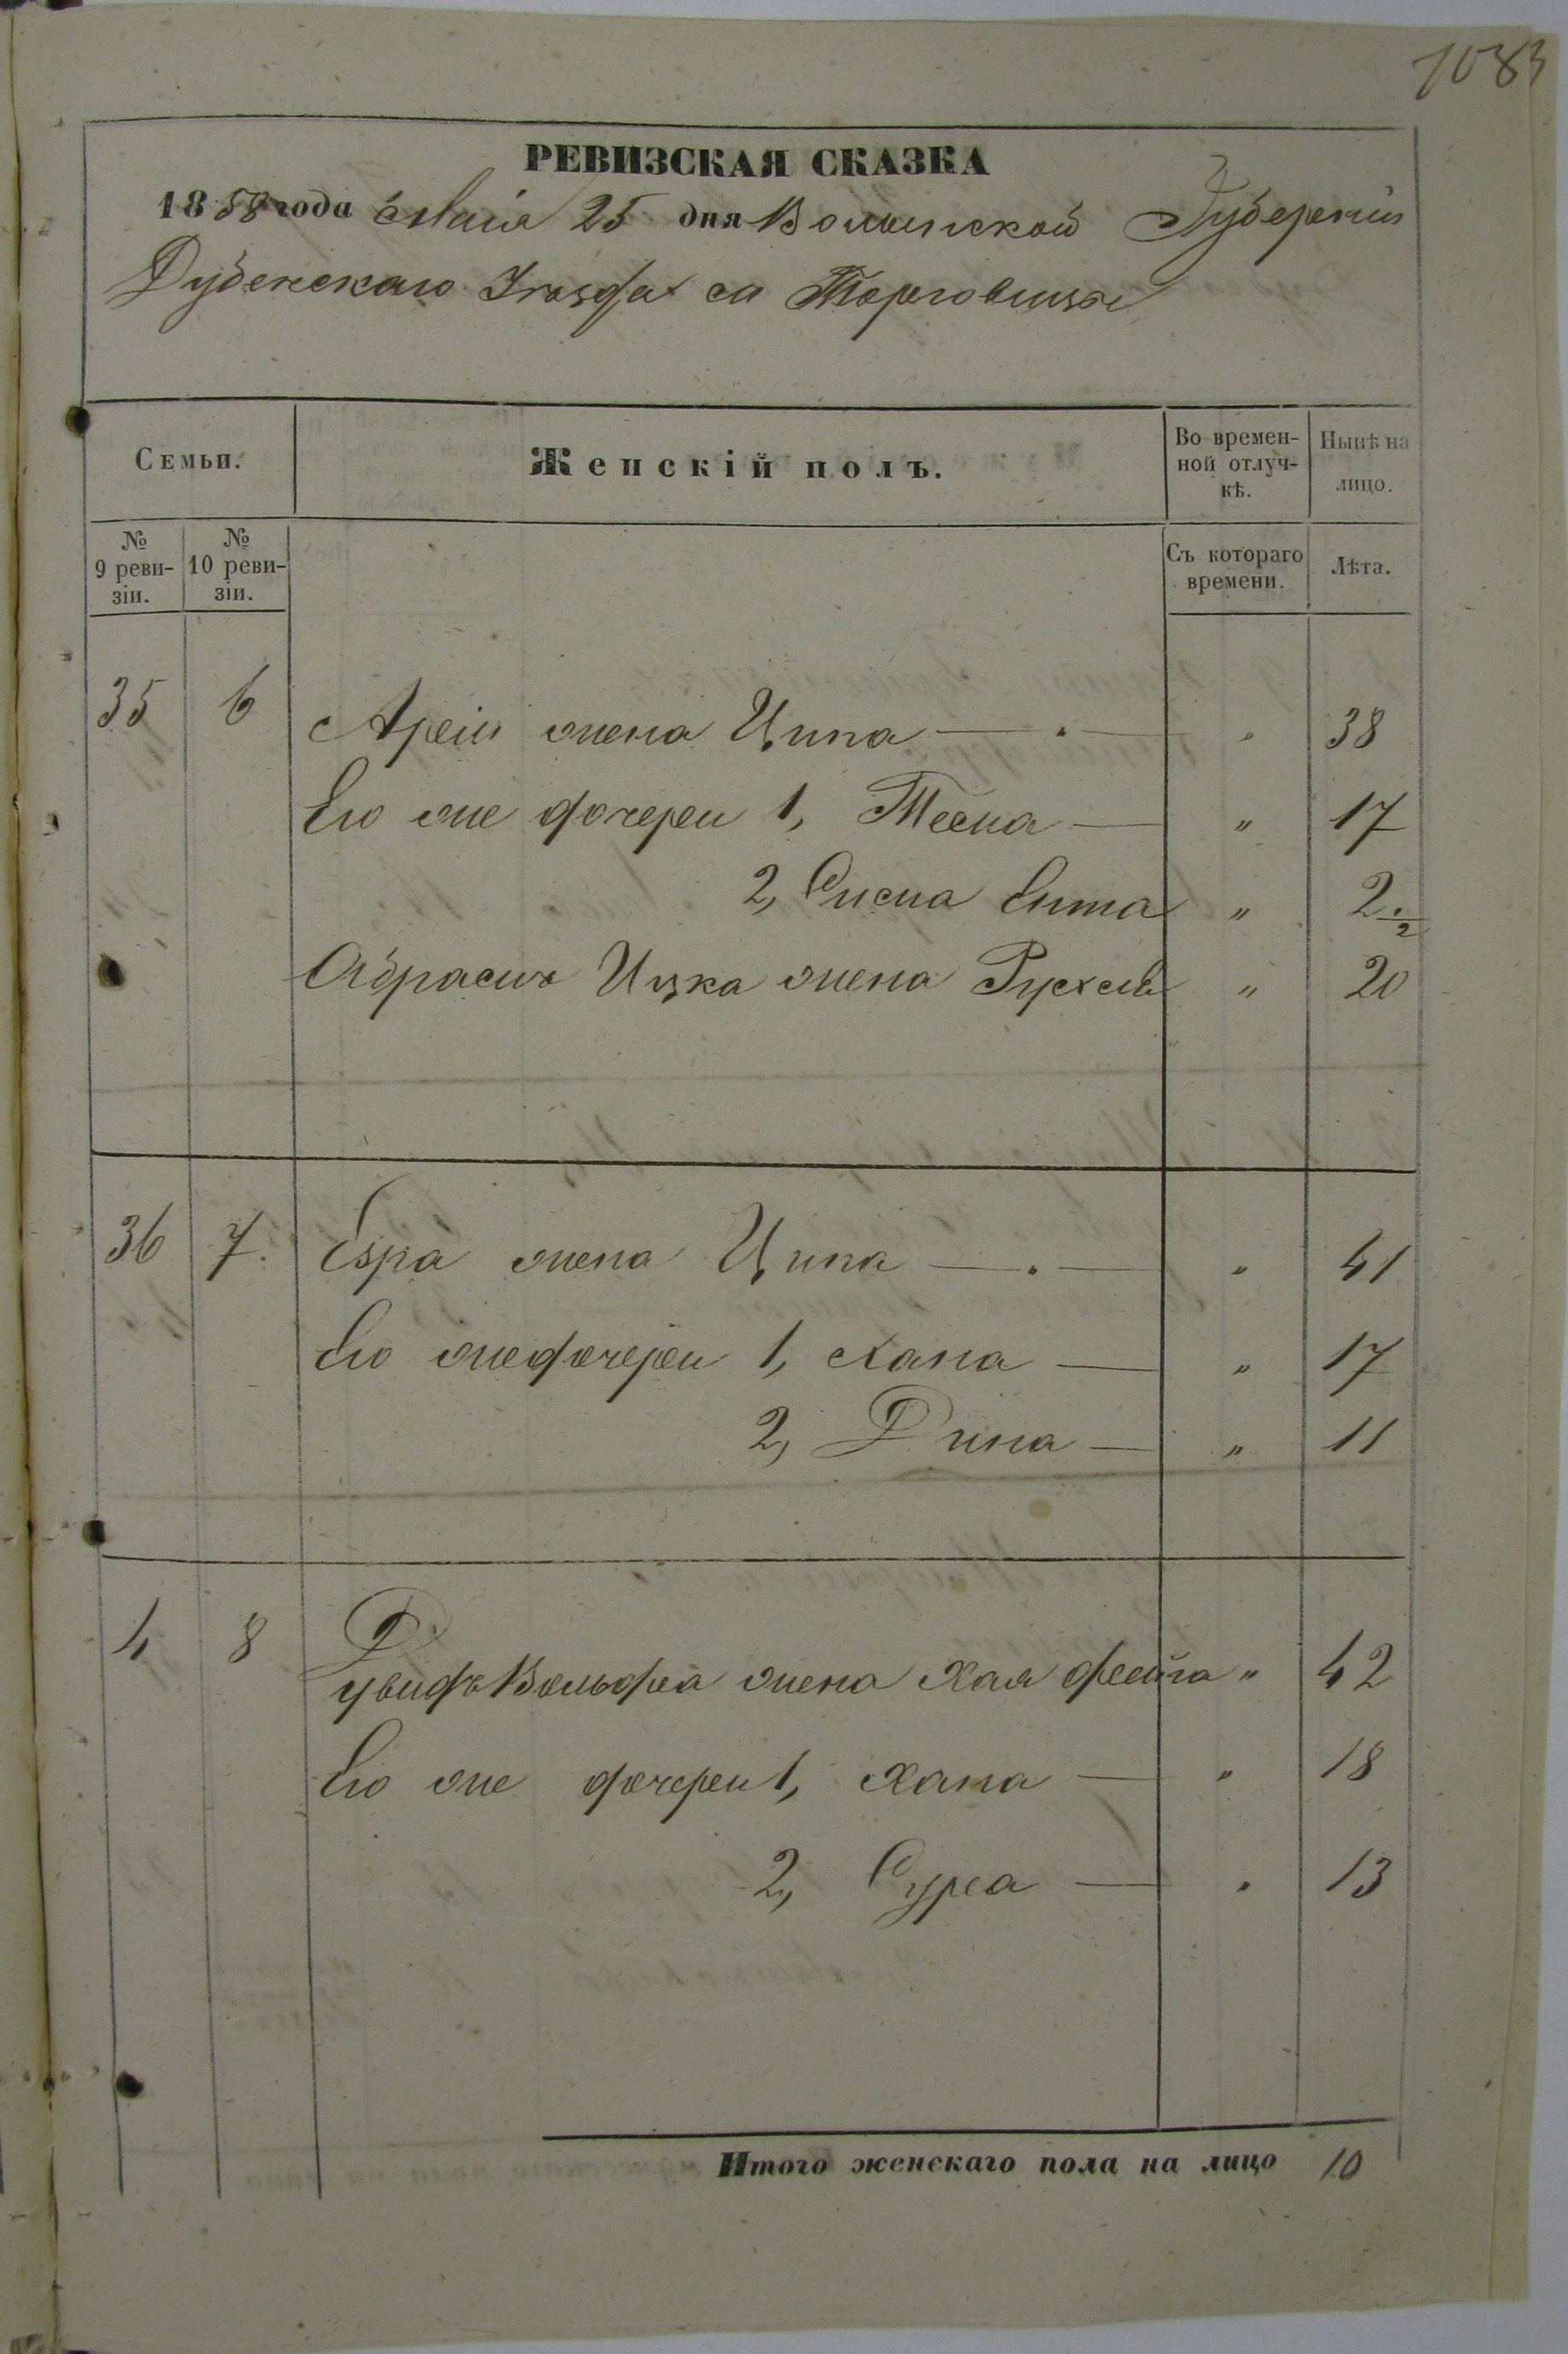 1083
РЕВИЗСКАЯ СКАЗКА
1858 года Маія 25 дня Волынской Губерніи
Дубенскаго Уѣзда м Торговицы
Семьи.
Женскій полъ.
Во времен-
ной отлуч-
кѣ.
Нынѣ на
лицо.
№
9 реви-
зіи.
№
10 реви-
зіи.
Съ котораго
времени.
Лѣта.
35 6 Арeіи жена Ципа — . — " 38
Его же дочери 1, Тесна — " 17
2, Сисна Ента " 2 1/2
Абрамъ Ицка жена Рухель " 20
36 7. Езра жена Ципа — . — " 41
Его же дочери 1, Хана — " 17
2, Дина — " 11
4 8 Дувидъ Вольфа жена Хая Фейга " 42
Его же дочери 1, Хана — " 18
2, Сура — " 13
Итого женскаго пола на лицо 10